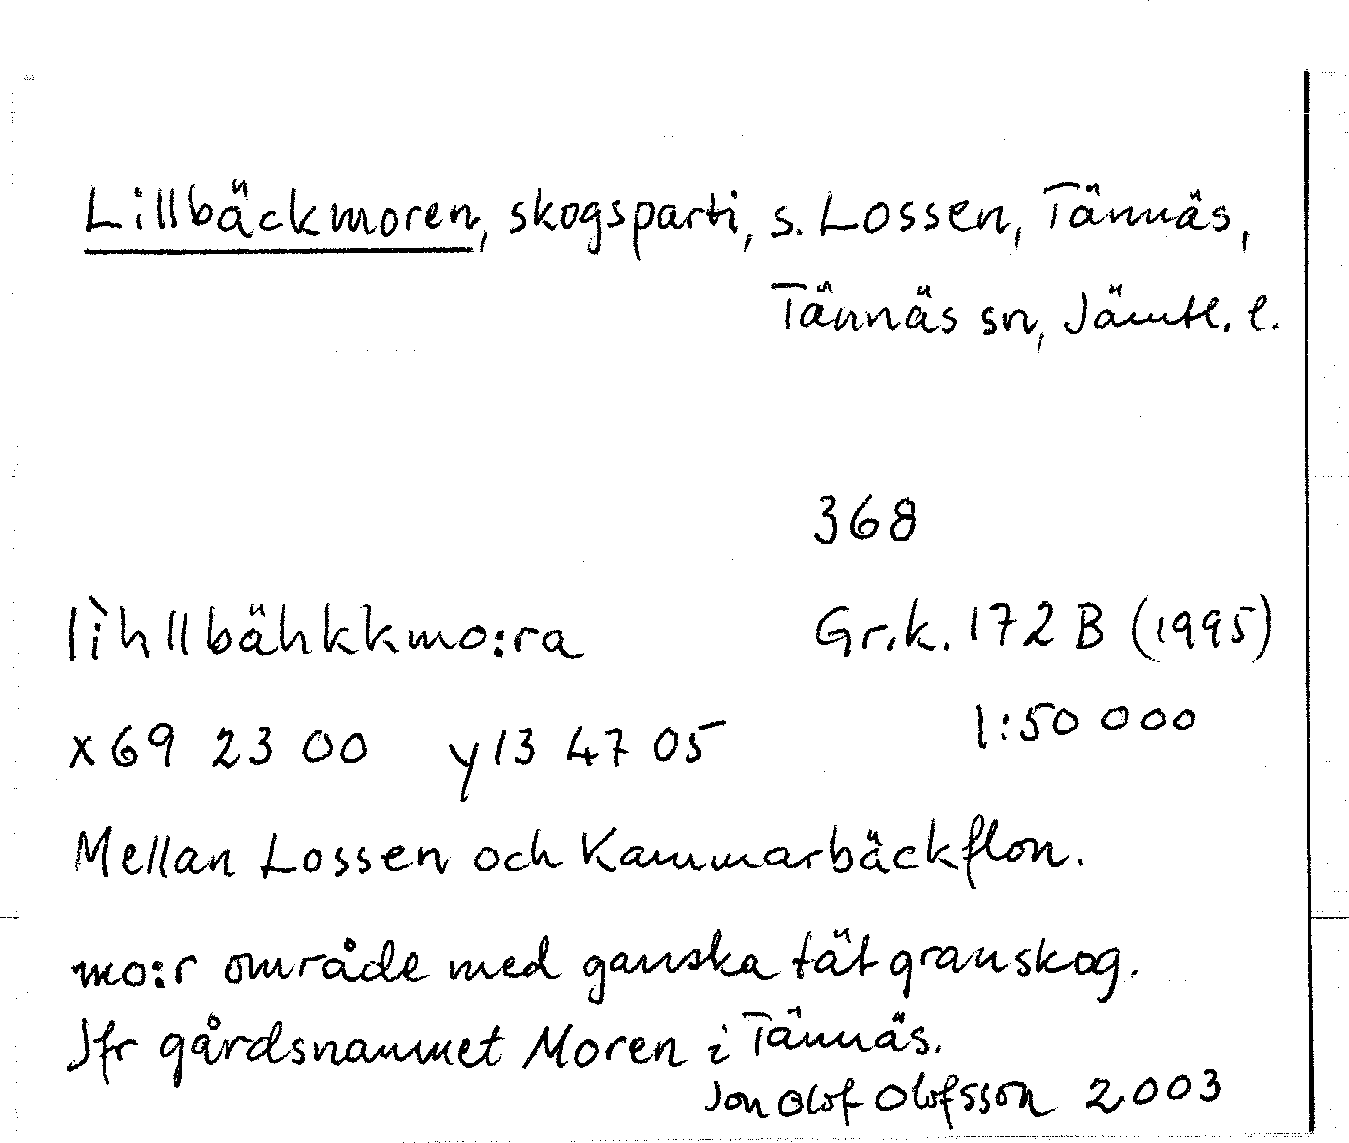 Lillbäckmoren, skogsparti, s. Lossen, Tännäs,
Tännäs sn, Jämtl. l.
368
lìhllbähkkmo:ra Gr.k. 172 B (1995)
x 69 23 00 y 13 47 05 1:50 000
Mellan Lossen och Kammarbäckflon.
mo:r område med ganska tät granskog.
Jfr gårdsnamnet Moren i Tännäs.
Jon Olof Olofsson 2003